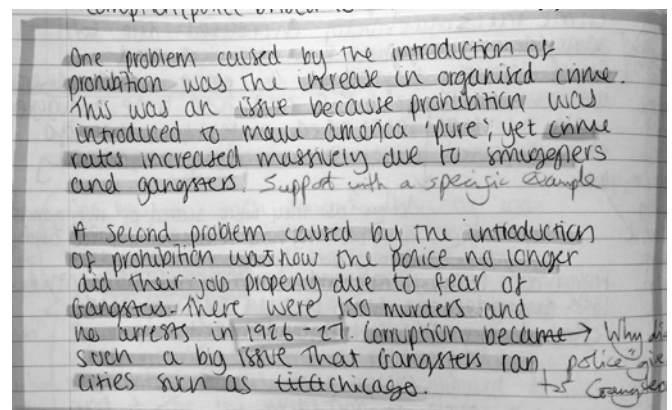 One problem caused by the introduction of
prohibition was the increase in organised crime.
This was an issue because prohibition was
introduced to make america 'pure', yet crime
rates increased massively due to smugglers
and gangsters. Support with a specific example
A second problem caused by the introduction
of prohibition was how the police no longer
did their job properly due to fear of
Gangsters. There were 130 murders and
no arrests in 1926-27. Corruption became → Why di
such a big issue that Gangsters ran police gi
cities such as chicago. to Gangster